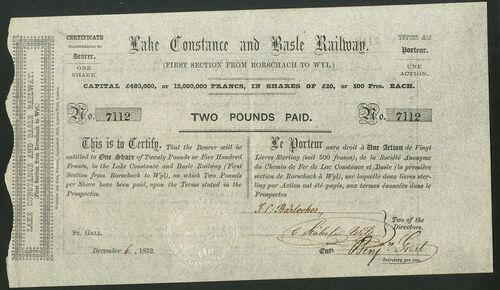 CERTIFICATE
TRANSFERABLE TO
Bearer.
ONE
SHARE.
Lake Constance and Basle Railway.
(FIRST SECTION FROM RORSCHACH TO WYL)
TITRE AU
Porteur.
UNE
ACTION.
CAPITAL £480,000, or 12,000,000 FRANCS, IN SHARES OF £20, or 500 Frcs. EACH.
No. 7112
TWO POUNDS PAID.
No. 7112
This is to Certify, That the Bearer will be
entitled to One Share of Twenty Pounds or Five Hundred
Francs, in the Lake Constance and Basle Railway (First
Section from Rorschach to Wyl), on which Two Pounds
per Share have been paid, upon the Terms stated in the
Prospectus
Le Porteur aura droit à Une Action de Vingt
Livres Sterling (soit 500 francs), de la Société Anonyme
du Chemin de Fer de Lac Constance et Basle (la première
section de Rorschach à Wyl), sur laquelle deux livres ster-
ling par Action ont été payés, aux termes énoncées dans le
Prospectus
ST. GALL,
December 6, 1852.
Two of the
Directors.
Ent.
Secretary pro tem.
LAKE CONSTANCE AND BASLE RAILWAY.
(First Section from Rorschach to Wyl)